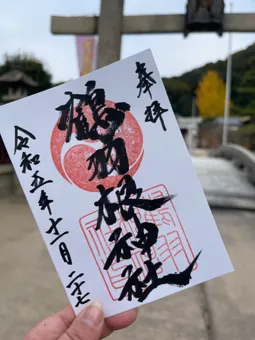 奉拝
鶴羽根神社
令和五年十一月二十七